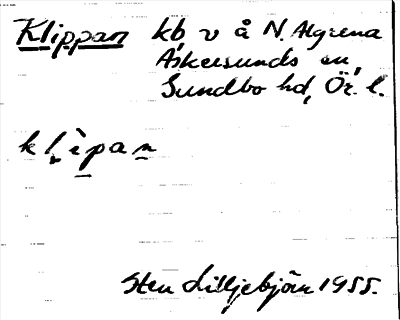 Klippan kb v å N. Algrena
Askersunds sn,
Sundbo hd, Ör. l.
klìpan
Sten Lilljebjörn 1955.